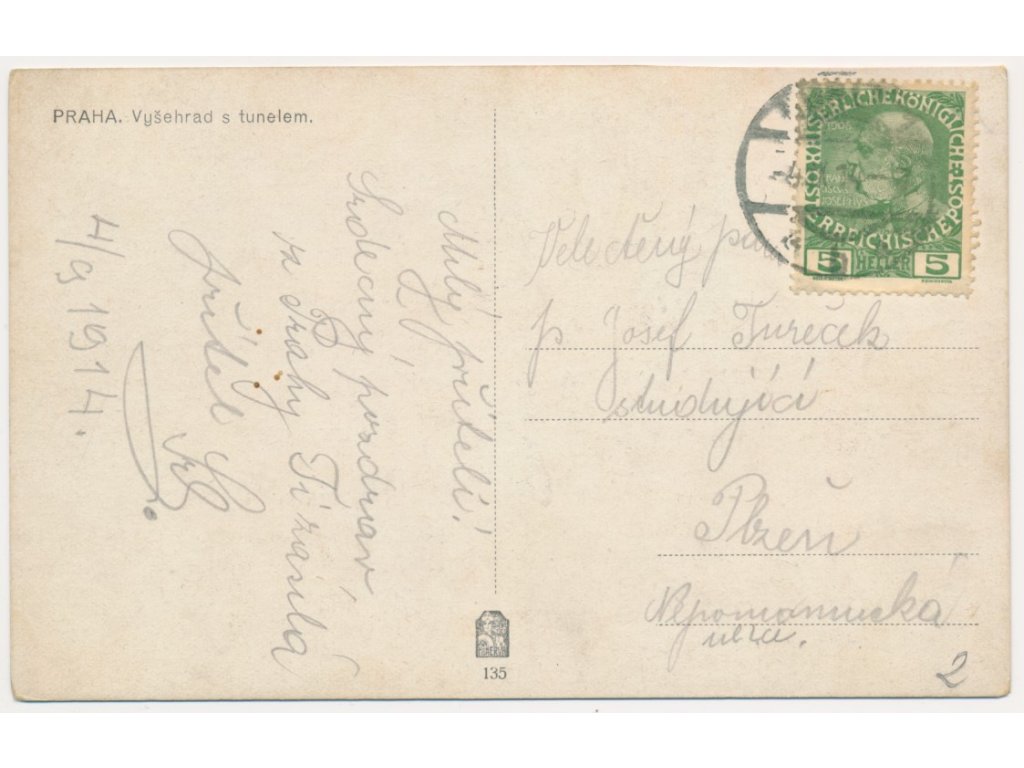 PRAHA. Vyšehrad s tunelem.
Milý příteli!
Srdečný pozdrav
z Prahy Ti zasílá
přítel
4/9 1914.
KAISERLICHE KÖNIGLICHE ÖSTERREICHISCHE POST
1908
5 HELLER 5
Velectěný pan
p. Josef Tureček
studující
Plzeň
Nepomucká
ulice.
135
2